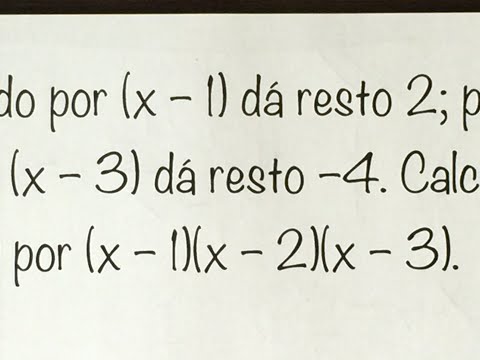 do por (x – 1) dá resto 2; p
(x – 3) dá resto –4. Calc
por (x – 1)(x – 2)(x – 3).